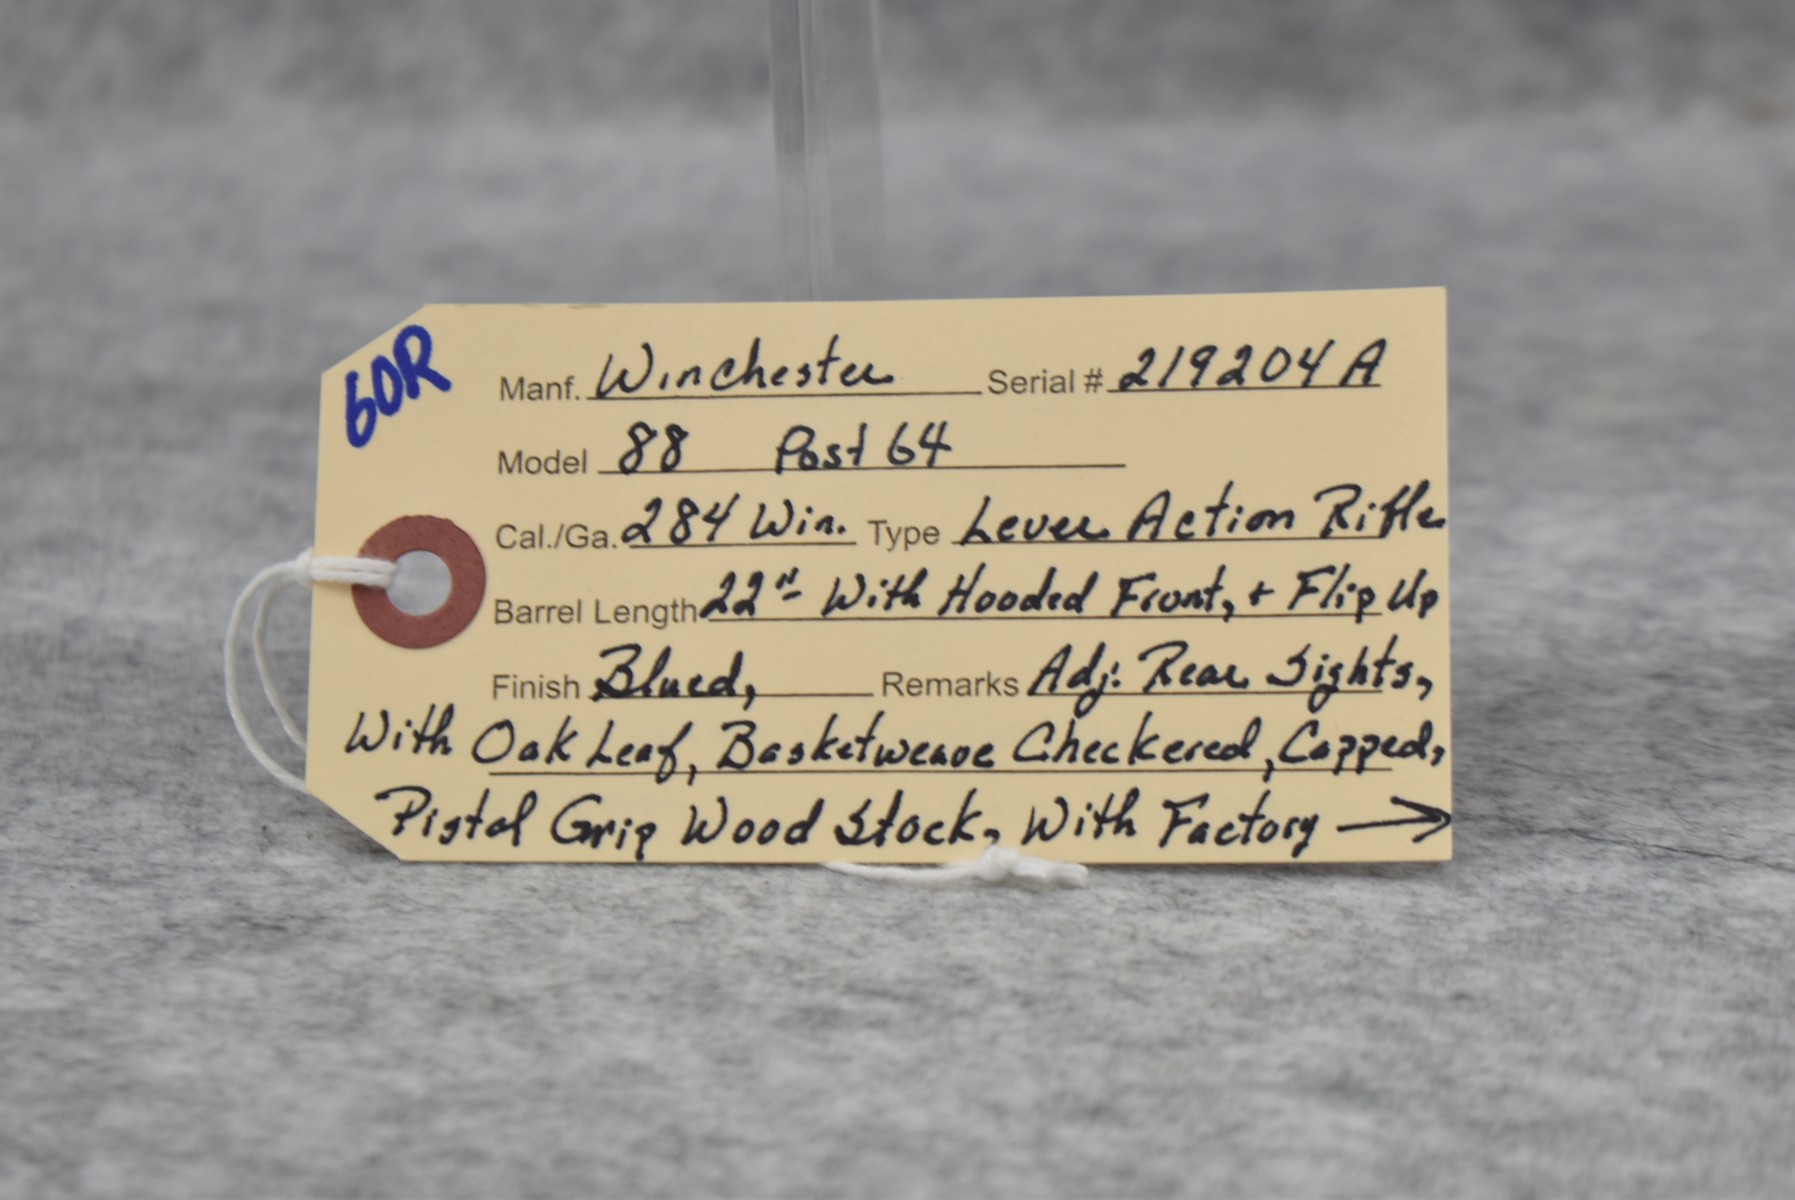 60R
Manf. Winchester Serial # 219204A
Model 88 Post 64
Cal./Ga. 284 Win. Type Lever Action Rifle
Barrel Length 22" With Hooded Front, + Flip Up
Finish Blued, Remarks Adj. Rear Sights,
With Oak Leaf, Basketweave Checkered, Capped,
Pistol Grip Wood Stock, With Factory →